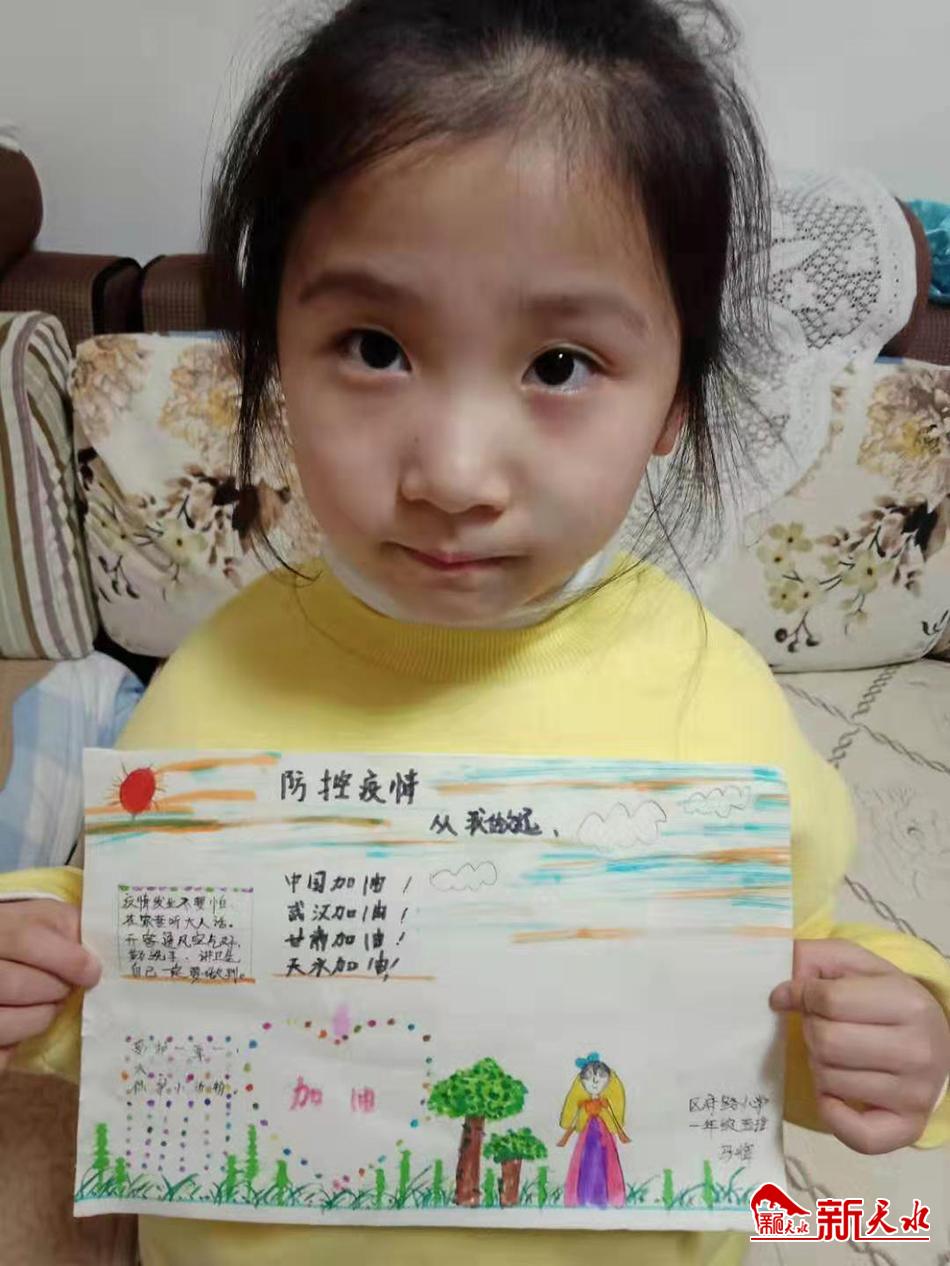 防控疫情
从我做起、
中国加油！
武汉加油！
甘肃加油！
天水加油！
疫情发生不要怕
在家要听大人话。
开窗通风空气好，
勤洗手、讲卫生
自己一定要做到。
加油
区府路小学
一年级五班
新天水